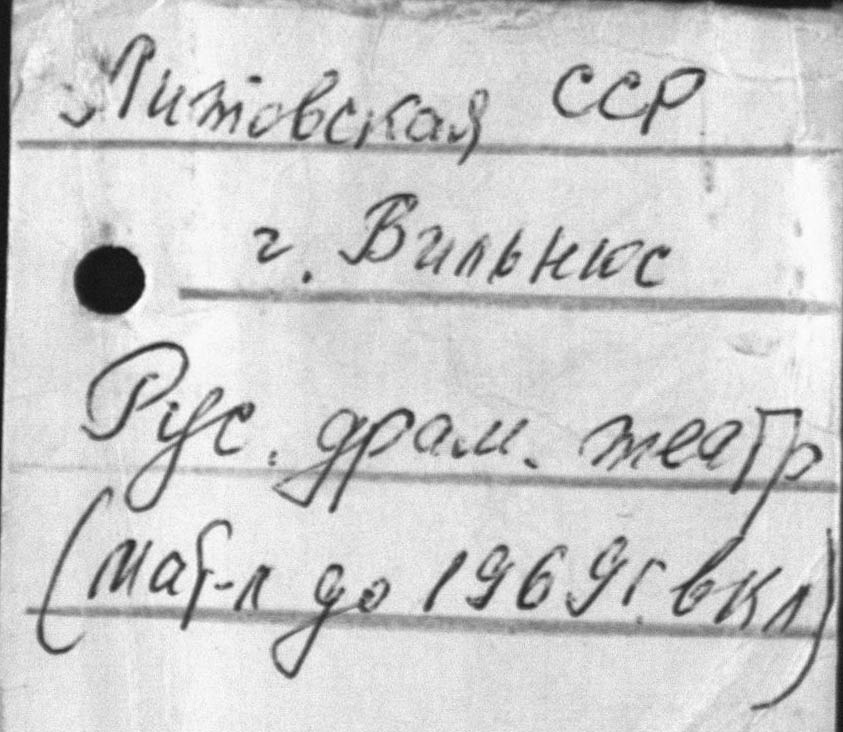 Литовская ССР
г. Вильнюс
Рус. драм. театр
(мат-л до 1969г. вкл)